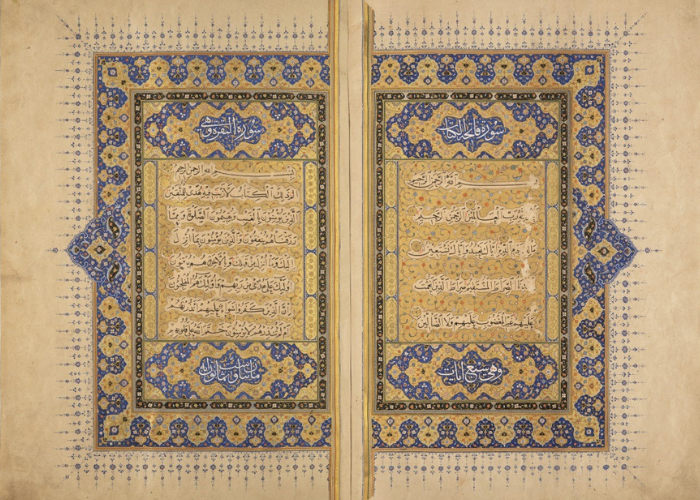 سورة فاتحة الكتاب
بسم الله الرحمن الرحيم
رب العالمين الرحمن الرحيم
يوم الدين اياك نعبد واياك نستعين
الصراط المستقيم صراط الذين انعمت
عليهم غير المغضوب عليهم ولا الضالين
وهي سبع آيات
سورة البقرة وهي
بسم الله الرحمن الرحيم
الم ذلك الكتاب لا ريب فيه هدى للمتقين
الذين يؤمنون بالغيب ويقيمون الصلوة ومما
رزقناهم ينفقون والذين يؤمنون بما انزل
اليك وما انزل من قبلك وبالاخرة هم يوقنون
اولئك على هدى من ربهم واولئك هم المفلحون
ان الذين كفروا سواء عليهم ءانذرتهم
ام لم تنذرهم لا يؤمنون ختم الله على قلوبهم
مائتان وثمانون